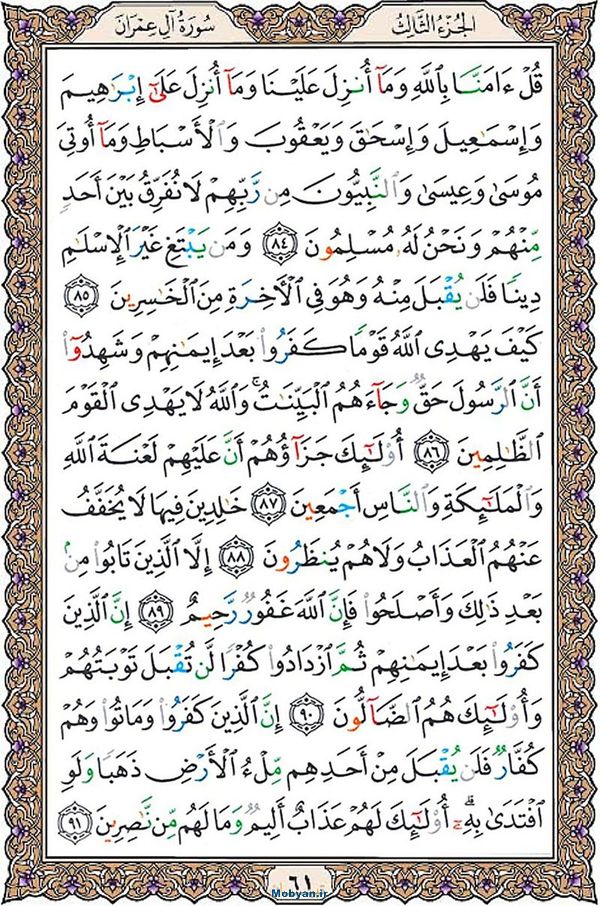 الجزء الثالث
سورة آل عمران
قُلْ ءَامَنَّا بِاللَّهِ وَمَآ أُنزِلَ عَلَيْنَا وَمَآ أُنزِلَ عَلَىٰٓ إِبْرَٰهِيمَ
وَإِسْمَٰعِيلَ وَإِسْحَٰقَ وَيَعْقُوبَ وَالْأَسْبَاطِ وَمَآ أُوتِىَ
مُوسَىٰ وَعِيسَىٰ وَالنَّبِيُّونَ مِن رَّبِّهِمْ لَا نُفَرِّقُ بَيْنَ أَحَدٍ
مِّنْهُمْ وَنَحْنُ لَهُۥ مُسْلِمُونَ ٨٤ وَمَن يَبْتَغِ غَيْرَ الْإِسْلَٰمِ
دِينًا فَلَن يُقْبَلَ مِنْهُ وَهُوَ فِى الْأَخِرَةِ مِنَ الْخَٰسِرِينَ ٨٥
كَيْفَ يَهْدِى اللَّهُ قَوْمًا كَفَرُوا بَعْدَ إِيمَٰنِهِمْ وَشَهِدُوٓا
أَنَّ الرَّسُولَ حَقٌّ وَجَآءَهُمُ الْبَيِّنَٰتُ ۚ وَاللَّهُ لَا يَهْدِى الْقَوْمَ
الظَّٰلِمِينَ ٨٦ أُوْلَٰٓئِكَ جَزَآؤُهُمْ أَنَّ عَلَيْهِمْ لَعْنَةَ اللَّهِ
وَالْمَلَٰٓئِكَةِ وَالنَّاسِ أَجْمَعِينَ ٨٧ خَٰلِدِينَ فِيهَا لَا يُخَفَّفُ
عَنْهُمُ الْعَذَابُ وَلَا هُمْ يُنظَرُونَ ٨٨ إِلَّا الَّذِينَ تَابُوا مِنۢ
بَعْدِ ذَٰلِكَ وَأَصْلَحُوا فَإِنَّ اللَّهَ غَفُورٌ رَّحِيمٌ ٨٩ إِنَّ الَّذِينَ
كَفَرُوا بَعْدَ إِيمَٰنِهِمْ ثُمَّ ازْدَادُوا كُفْرًا لَّن تُقْبَلَ تَوْبَتُهُمْ
وَأُوْلَٰٓئِكَ هُمُ الضَّآلُّونَ ٩٠ إِنَّ الَّذِينَ كَفَرُوا وَمَاتُوا وَهُمْ
كُفَّارٌ فَلَن يُقْبَلَ مِنْ أَحَدِهِم مِّلْءُ الْأَرْضِ ذَهَبًا وَلَوِ
افْتَدَىٰ بِهِۦٓ ۗ أُوْلَٰٓئِكَ لَهُمْ عَذَابٌ أَلِيمٌ وَمَا لَهُم مِّن نَّٰصِرِينَ ٩١
٦١
Mobyan.ir